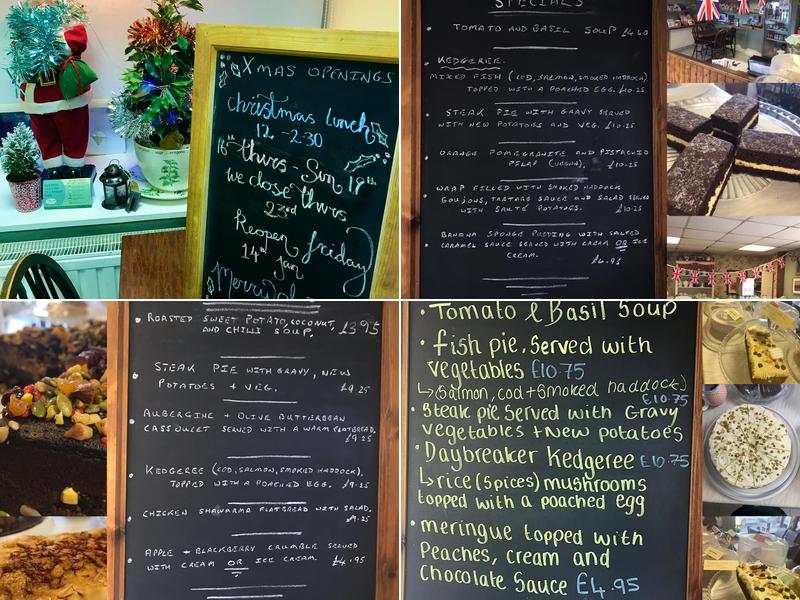 Xmas Openings
christmas lunch
12 - 2.30
16th thurs - Sun 19th
we close thurs
23rd
Reopen friday
14th Jan
SPECIALS
TOMATO AND BASIL SOUP £4.60
KEDGEREE.
MIXED FISH (COD, SALMON, SMOKED HADDOCK)
TOPPED WITH A POACHED EGG. £10.25
STEAK PIE WITH GRAVY SERVED
WITH NEW POTATOES AND VEG. £10.25
ORANGE POMEGRANITE AND PISTACHIO
PILAF (VEGAN). £10.25
WRAP FILLED WITH SMOKED HADDOCK
GOUJONS, TARTARE SAUCE AND SALAD SERVED
WITH SAUTÉ POTATOES. £10.25
BANANA SPONGE PUDDING WITH SALTED
CARAMEL SAUCE SERVED WITH CREAM OR ICE
CREAM. £4.95
ROASTED SWEET POTATO, COCONUT,
AND CHILLI SOUP. £3.95
STEAK PIE WITH GRAVY, NEW
POTATOES + VEG. £9.25
AUBERGINE + OLIVE BUTTERBEAN
CASSOULET SERVED WITH A WARM FLATBREAD.
£9.25
KEDGEREE (COD, SALMON, SMOKED HADDOCK).
TOPPED WITH A POACHED EGG. £9.25
CHICKEN SHAWARMA FLATBREAD WITH SALAD.
£9.25
APPLE + BLACKBERRY CRUMBLE SERVED
WITH CREAM OR ICE CREAM. £4.95
• Tomato & Basil Soup
• fish pie, Served with
vegetables £10.75
↳(Salmon, cod + Smoked haddock)
£10.75
• Steak pie Served with Gravy
vegetables + New potatoes
• Daybreaker Kedgeree £10.75
↳rice (Spices) mushrooms
topped with a poached egg
• meringue topped with
Peaches, cream and
Chocolate Sauce £4.95